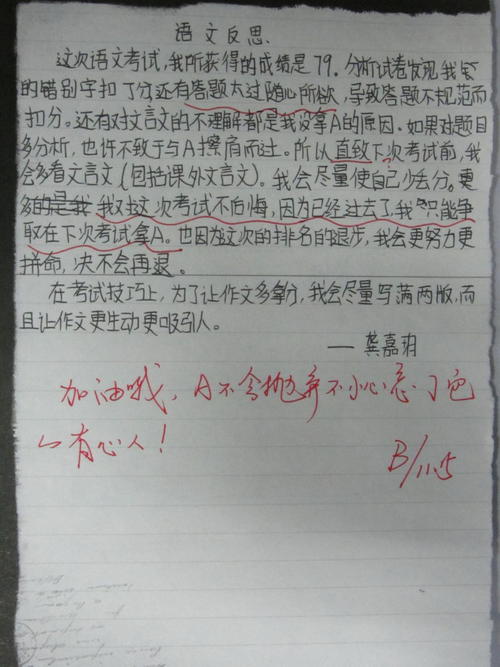 语文反思
这次语文考试，我所获得的成绩是79。分析试卷发现我
的错别字扣了分，还有答题太过随心所欲，导致答题不规范而
扣分。还有对文言文的不理解都是我没拿A的原因。如果对题目
多分析，也许不致于与A擦肩而过。所以直致下次考试前，我
会多看文言文（包括课外文言文）。我会尽量使自己少丢分。更
多的是我 我对这次考试不后悔，因为已经过去了，我只能争
取在下次考试拿A。也因为这次的排名的退步，我会更努力更
拼命，决不会再退。
在考试技巧上，为了让作文多拿分，我会尽量写满两版，而
且让作文更生动更吸引人。
——龚嘉玥
加油哦，A不会抛弃不小心忘了它
的有心人！
B/11.5